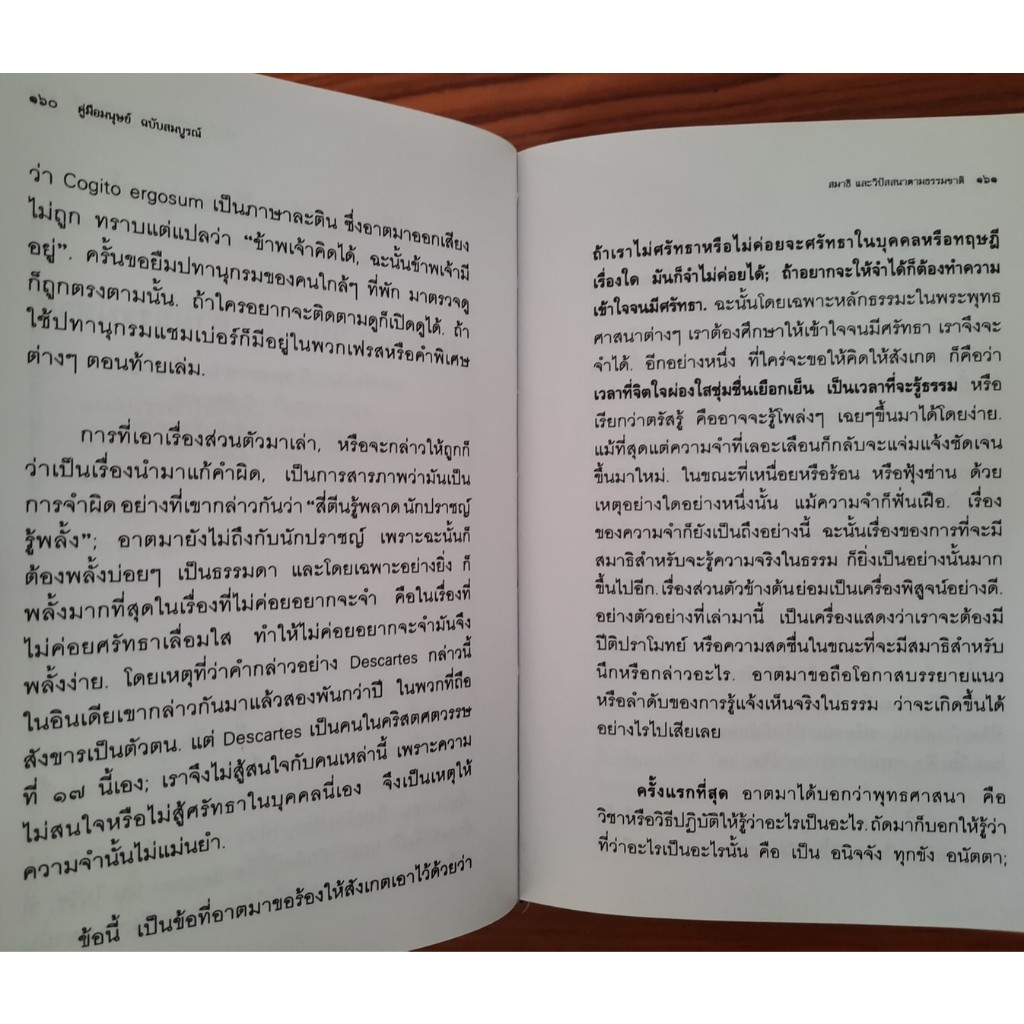 ๑๖๐ คู่มือมนุษย์ ฉบับสมบูรณ์
ว่า Cogito ergosum เป็นภาษาละติน ซึ่งอาตมาออกเสียง
ไม่ถูก ทราบแต่แปลว่า “ข้าพเจ้าคิดได้, ฉะนั้นข้าพเจ้ามี
อยู่”. ครั้นขอยืมปทานุกรมของคนใกล้ๆ ที่พัก มาตรวจดู
ก็ถูกตรงตามนั้น. ถ้าใครอยากจะติดตามดูก็เปิดดูได้. ถ้า
ใช้ปทานุกรมแชมเบ่อร์ก็มีอยู่ในพวกเฟรสหรือคำพิเศษ
ต่างๆ ตอนท้ายเล่ม.
การที่เอาเรื่องส่วนตัวมาเล่า, หรือจะกล่าวให้ถูกก็
ว่าเป็นเรื่องนำมาแก้คำผิด, เป็นการสารภาพว่ามันเป็น
การจำผิด อย่างที่เขากล่าวกันว่า “สี่ตีนรู้พลาด นักปราชญ์
รู้พลั้ง”; อาตมายังไม่ถึงกับนักปราชญ์ เพราะฉะนั้นก็
ต้องพลั้งบ่อยๆ เป็นธรรมดา และโดยเฉพาะอย่างยิ่ง ก็
พลั้งมากที่สุดในเรื่องที่ไม่ค่อยอยากจะจำ คือในเรื่องที่
ไม่ค่อยศรัทธาเลื่อมใส ทำให้ไม่ค่อยอยากจะจำมันจึง
พลั้งง่าย. โดยเหตุที่ว่าคำกล่าวอย่าง Descartes กล่าวนี้
ในอินเดียเขากล่าวกันมาแล้วสองพันกว่าปี ในพวกที่ถือ
สังขารเป็นตัวตน. แต่ Descartes เป็นคนในคริสตศตวรรษ
ที่ ๑๗ นี้เอง; เราจึงไม่สู้สนใจกับคนเหล่านี้ เพราะความ
ไม่สนใจหรือไม่สู้ศรัทธาในบุคคลนี่เอง จึงเป็นเหตุให้
ความจำนั้นไม่แม่นยำ.
ข้อนี้ เป็นข้อที่อาตมาขอร้องให้สังเกตเอาไว้ด้วยว่า
สมาธิ และวิปัสสนาตามธรรมชาติ ๑๖๑
ถ้าเราไม่ศรัทธาหรือไม่ค่อยจะศรัทธาในบุคคลหรือทฤษฎี
เรื่องใด มันก็จำไม่ค่อยได้; ถ้าอยากจะให้จำได้ก็ต้องทำความ
เข้าใจจนมีศรัทธา. ฉะนั้นโดยเฉพาะหลักธรรมะในพระพุทธ
ศาสนาต่างๆ เราต้องศึกษาให้เข้าใจจนมีศรัทธา เราจึงจะ
จำได้. อีกอย่างหนึ่ง ที่ใคร่จะขอให้คิดให้สังเกต ก็คือว่า
เวลาที่จิตใจผ่องใสชุ่มชื่นเยือกเย็น เป็นเวลาที่จะรู้ธรรม หรือ
เรียกว่าตรัสรู้ คืออาจจะรู้โพล่งๆ เฉยๆขึ้นมาได้โดยง่าย.
แม้ที่สุดแต่ความจำที่เลอะเลือนก็กลับจะแจ่มแจ้งชัดเจน
ขึ้นมาใหม่. ในขณะที่เหนื่อยหรือร้อน หรือฟุ้งซ่าน ด้วย
เหตุอย่างใดอย่างหนึ่งนั้น แม้ความจำก็ฟั่นเฝือ. เรื่อง
ของความจำก็ยังเป็นถึงอย่างนี้ ฉะนั้นเรื่องของการที่จะมี
สมาธิสำหรับจะรู้ความจริงในธรรม ก็ยิ่งเป็นอย่างนั้นมาก
ขึ้นไปอีก. เรื่องส่วนตัวข้างต้นย่อมเป็นเครื่องพิสูจน์อย่างดี.
อย่างตัวอย่างที่เล่ามานี้ เป็นเครื่องแสดงว่าเราจะต้องมี
ปีติปราโมทย์ หรือความสดชื่นในขณะที่จะมีสมาธิสำหรับ
นึกหรือกล่าวอะไร. อาตมาขอถือโอกาสบรรยายแนว
หรือลำดับของการรู้แจ้งเห็นจริงในธรรม ว่าจะเกิดขึ้นได้
อย่างไรไปเสียเลย
ครั้งแรกที่สุด อาตมาได้บอกว่าพุทธศาสนา คือ
วิชาหรือวิธีปฏิบัติให้รู้ว่าอะไรเป็นอะไร. ถัดมาก็บอกให้รู้ว่า
ที่ว่าอะไรเป็นอะไรนั้น คือ เป็น อนิจจัง ทุกขัง อนัตตา;